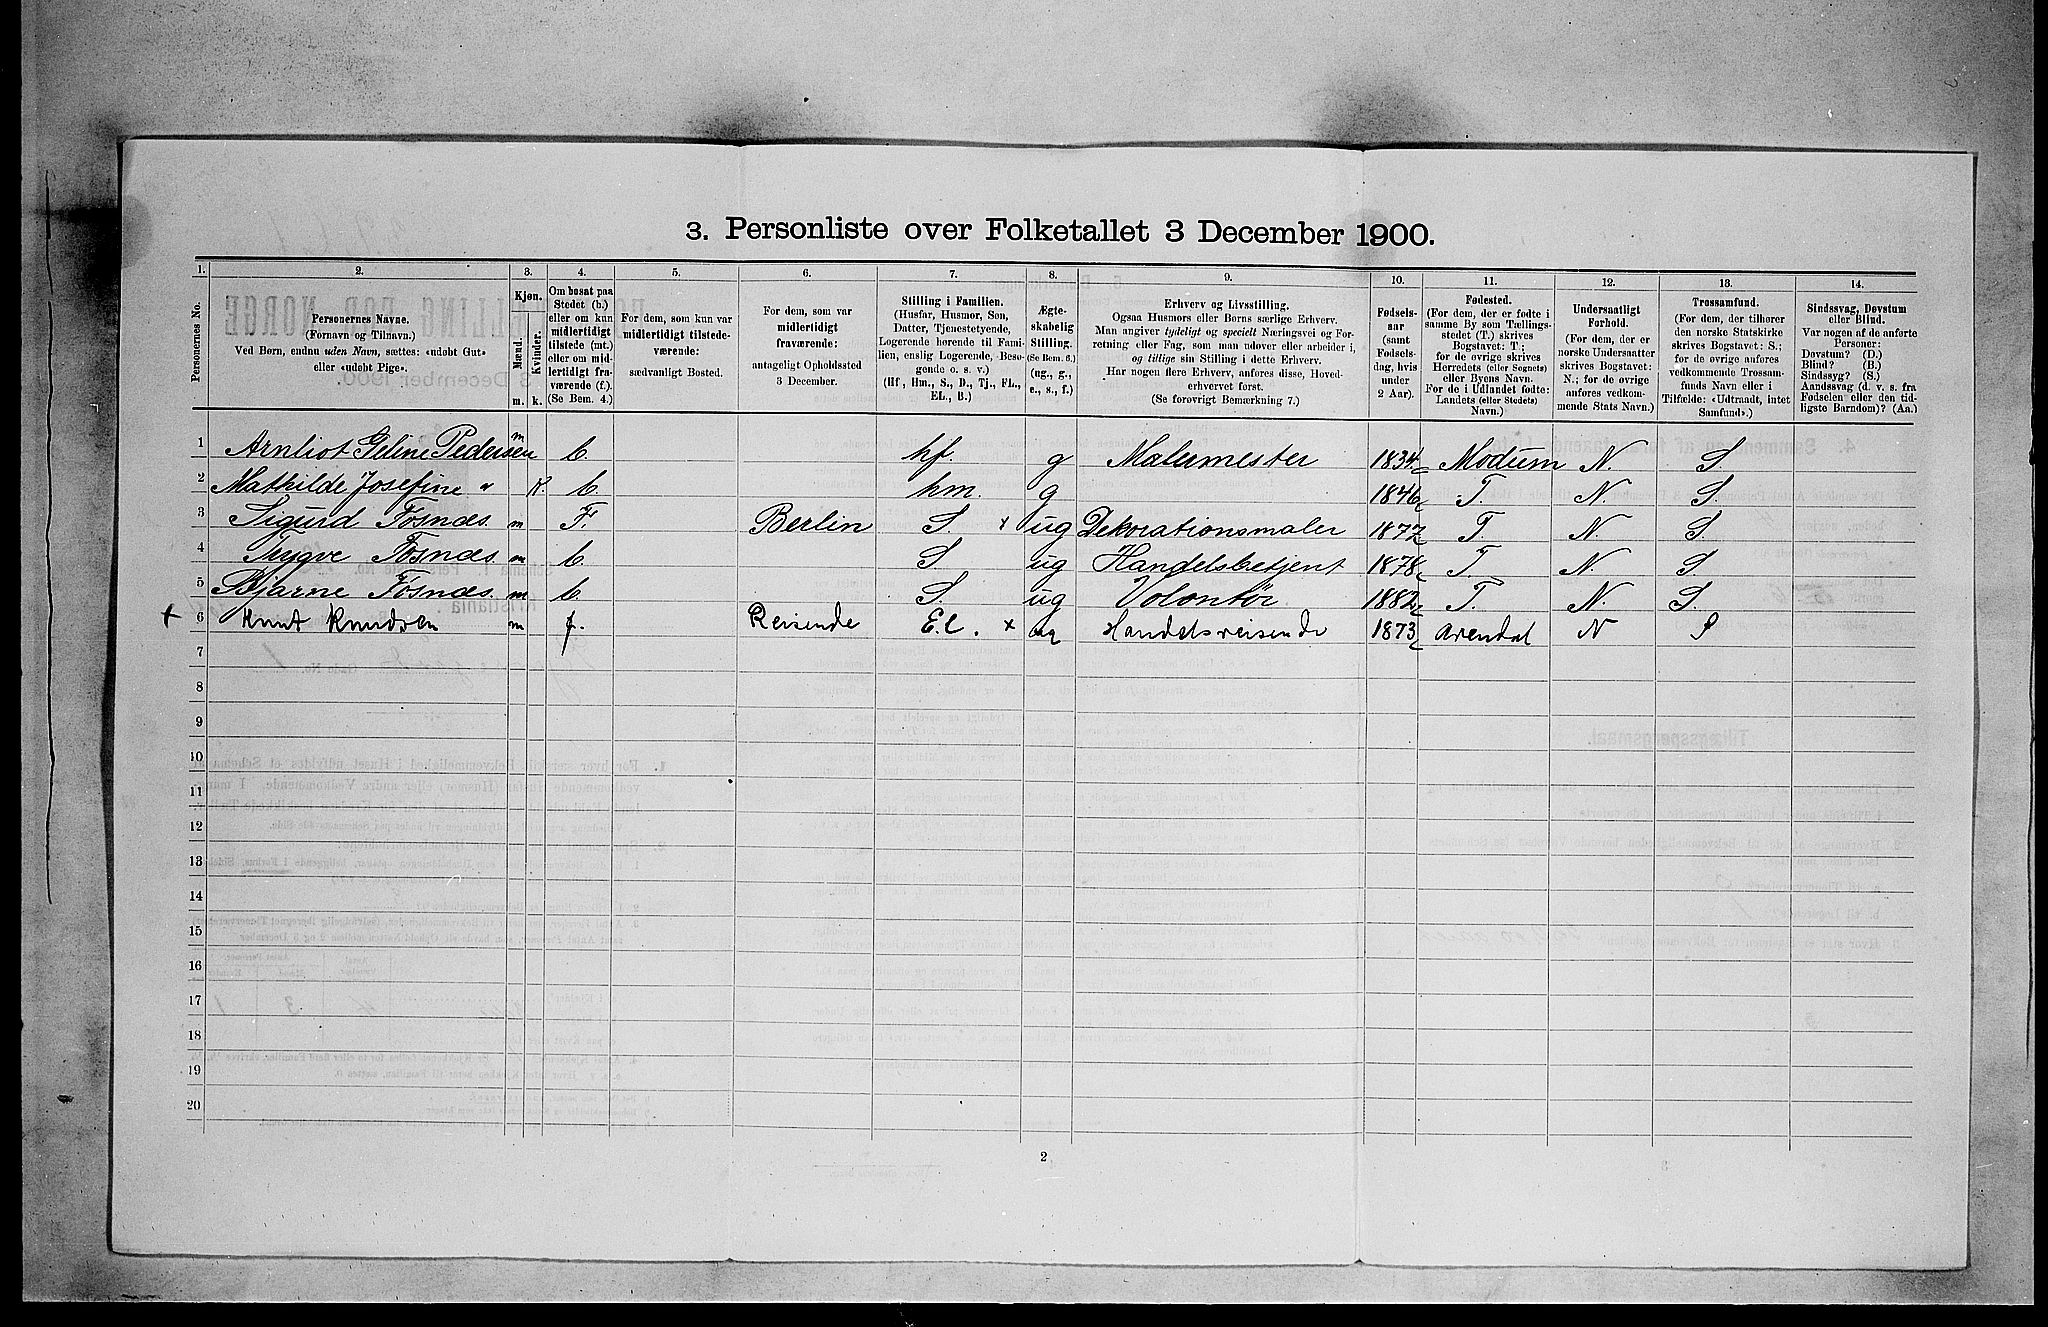 3. Personliste over Folketallet 3 December 1900.
1. 2. 3. 4. 5. 6. 7. 8. 9. 10. 11. 12. 13. 14.
Personernes No.
Personernes Navne.
(Fornavn og Tilnavn.)
Ved Børn, endnu uden Navn, sættes: «udøbt Gut»
eller «udøbt Pige».
Kjøn.
Mænd. Kvinder.
m. k.
Om bosat paa
Stedet (b.)
eller om kun
midlertidigt
tilstede (mt.)
eller om mid-
lertidigt fra-
værende (f.).
(Se Bem. 4.)
For dem, som kun var
midlertidigt tilstede-
værende:
sædvanligt Bosted.
For dem, som var
midlertidigt
fraværende:
antageligt Opholdssted
3 December.
Stilling i Familien.
(Husfar, Husmor, Søn,
Datter, Tjenestetyende,
Logerende hørende til Fami-
lien, enslig Logerende, Besø-
gende o. s. v.)
(Hf, Hm., S., D., Tj., FL.,
EL., B.)
Ægte-
skabelig
Stilling.
(Se Bem. 6.)
(ug., g.,
e., s., f.)
Erhverv og Livsstilling.
Ogsaa Husmors eller Børns særlige Erhverv.
Man angiver tydeligt og specielt Næringsvei og For-
retning eller Fag, som man udøver eller arbeider i,
og tillige sin Stilling i dette Erhverv.
Har nogen flere Erhverv, anføres disse, Hoved-
erhvervet først.
(Se forøvrigt Bemærkning 7.)
Fødsels-
aar
(samt
Fødsels-
dag, hvis
under
2 Aar).
Fødested.
(For dem, der er fødte i
samme By som Tællings-
stedet (T.) skrives
Bogstavet: T.;
for de øvrige skrives
Herredets (eller Sognets)
eller Byens Navn.
For de i Udlandet fødte:
Landets (eller Stedets)
Navn.)
Undersaatligt
Forhold.
(For dem, der er
norske Undersaatter
skrives Bogstavet:
N.; for de øvrige
anføres vedkom-
mende Stats Navn.)
Trossamfund.
(For dem, der tilhører
den norske Statskirke
skrives Bogstavet: S.;
for de øvrige anføres
vedkommende Trossam-
funds Navn eller i
Tilfælde: «Udtraadt, intet
Samfund».)
Sindssvag, Døvstum
eller Blind.
Var nogen af de anførte
Personer:
Døvstum? (D.)
Blind? (B.)
Sindssyg? (S.)
Aandssvag (d. v. s. fra
Fødselen eller den tid-
ligste Barndom)? (Aa.)
1 Arnliot Geline Pedersen m b. hf. g Malermester 1834 Modum N. S.
2 Mathilde Josefine " K. b. hm. g 1846 T. N. S.
3 Sigurd Fosnæs. m F. Berlin S. × ug Dekorationsmaler 1877 T. N. S.
4 Trygve Fosnæs. m b. S ug Handelsbetjent 1878 T. N. S
5 Bjarne Fosnæs. m b. S. ug Volontør 1882 T. N. S.
+ 6 Knut Knudsen m f. Reisende E.l. × ug Handelsreisende 1873 Arendal N S
7
8
9
10
11
12
13
14
15
16
17
18
19
20
2